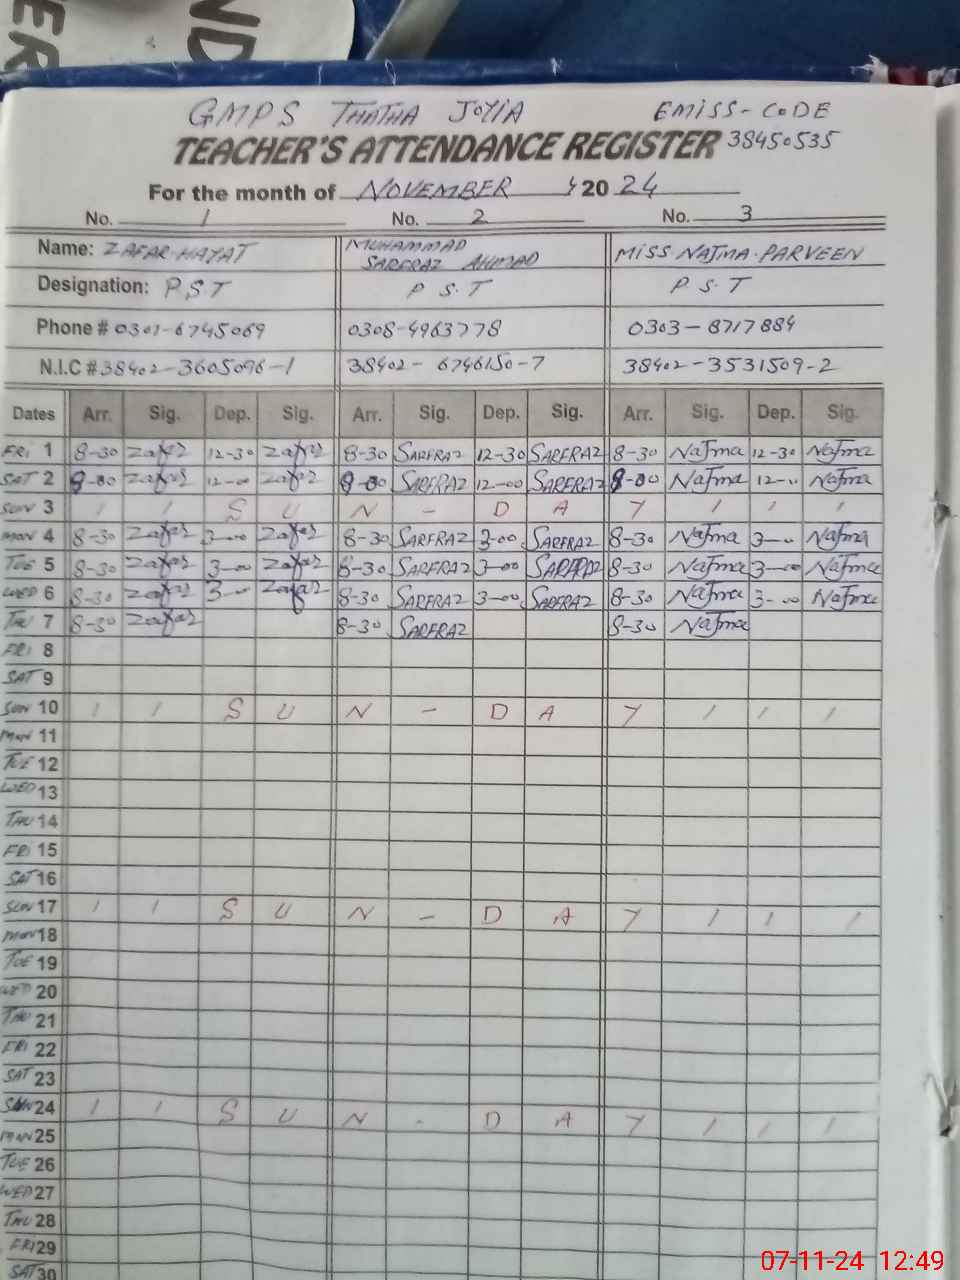 ER
ND
GMPS THATHA JOYIA EMISS-CODE
TEACHER'S ATTENDANCE REGISTER 38450535
For the month of NOVEMBER 2024
No. 1 No. 2 No. 3
Name: ZAFAR HAYAT MUHAMMAD SARFRAZ AHMAD MISS NAJMA PARVEEN
Designation: P.S.T P S.T P S.T
Phone # 0301-6745069 0308-4963778 0303-8717884
N.I.C # 38402-3605096-1 38402-6746150-7 38402-3531509-2
Dates Arr. Sig. Dep. Sig. Arr. Sig. Dep. Sig. Arr. Sig. Dep. Sig.
FRI 1 8-30 Zafar 12-30 Zafar 8-30 SARFRAZ 12-30 SARFRAZ 8-30 Najma 12-30 Najma
SAT 2 9-00 Zafar 12-00 Zafar 9-00 SARFRAZ 12-00 SARFRAZ 9-00 Najma 12-00 Najma
SUN 3 / / S U N - D A Y / / /
MON 4 8-30 Zafar 3-00 Zafar 8-30 SARFRAZ 3-00 SARFRAZ 8-30 Najma 3-00 Najma
TUE 5 8-30 Zafar 3-00 Zafar 8-30 SARFRAZ 3-00 SARFRAZ 8-30 Najma 3-00 Najma
WED 6 8-30 Zafar 3-00 Zafar 8-30 SARFRAZ 3-00 SARFRAZ 8-30 Najma 3-00 Najma
THU 7 8-30 Zafar 8-30 SARFRAZ 8-30 Najma
FRI 8
SAT 9
SUN 10 / / S U N - D A Y / / /
MON 11
TUE 12
WED 13
THU 14
FRI 15
SAT 16
SUN 17 / / S U N - D A Y / / /
MON 18
TUE 19
WED 20
THU 21
FRI 22
SAT 23
SUN 24 / / S U N - D A Y / / /
MON 25
TUE 26
WED 27
THU 28
FRI 29
SAT 30
07-11-24 12:49